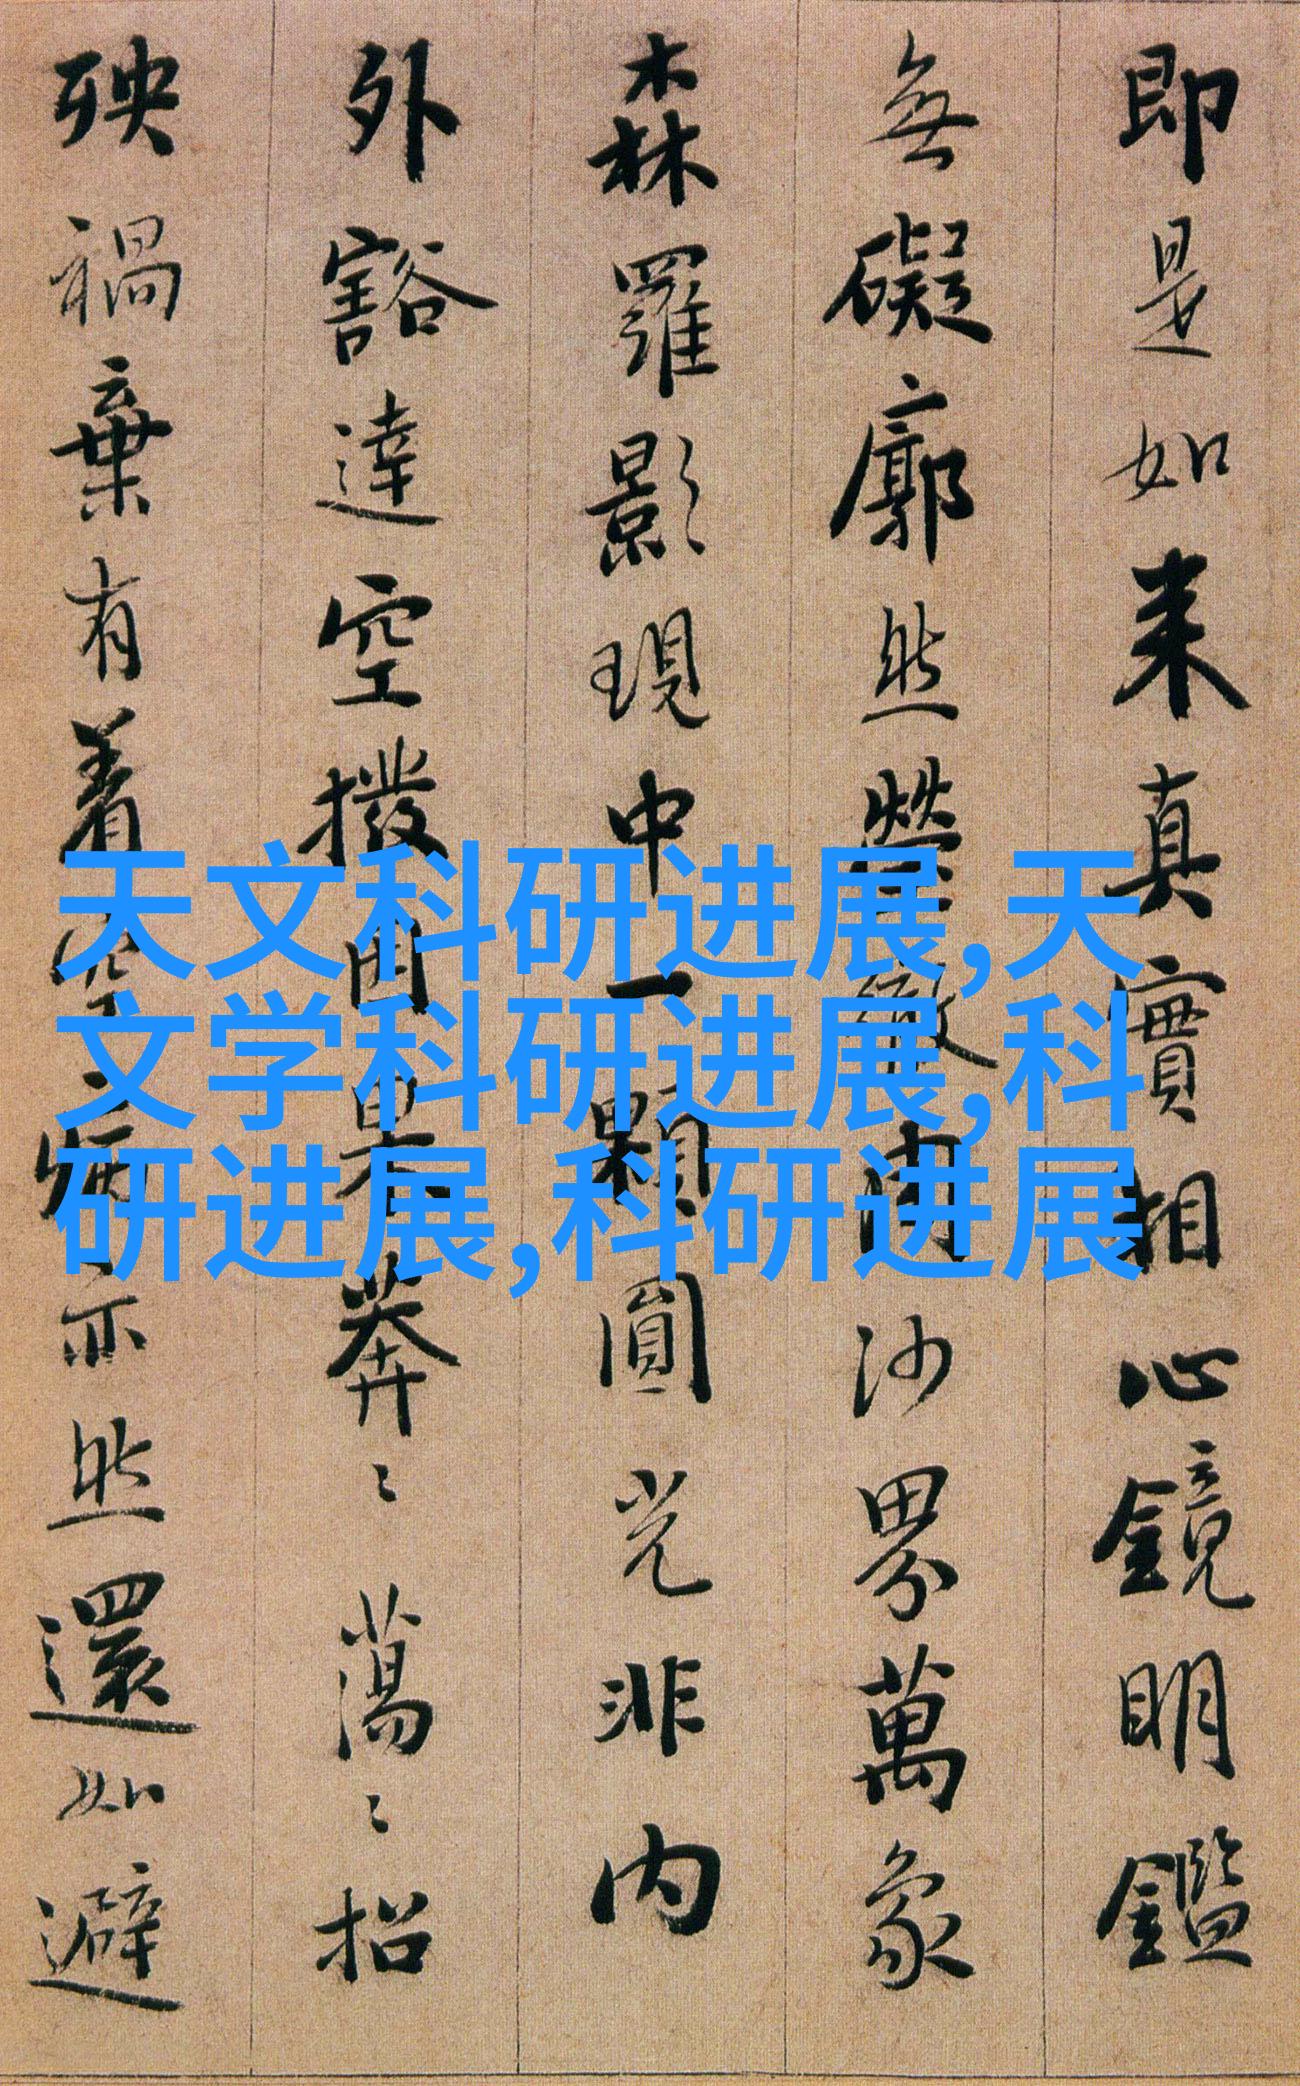 即是如来真實相心鏡明鑑
無礙廓然瑩徹周沙界萬象
森羅影現中一顆圓光非内
外豁達空撥因果莽〻蕩〻招
殃禍棄有着空病亦然還如避
天文科研进展,天
文学科研进展,科
研进展,科研进展